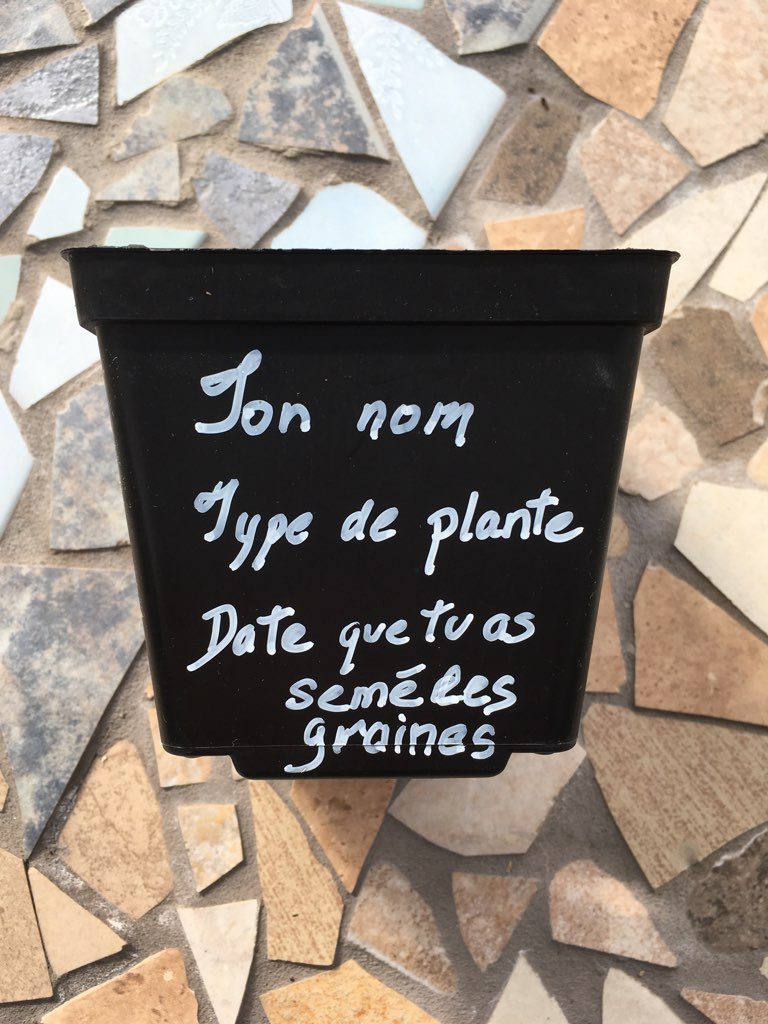 Ton nom
Type de plante
Date que tu as
semé les
graines